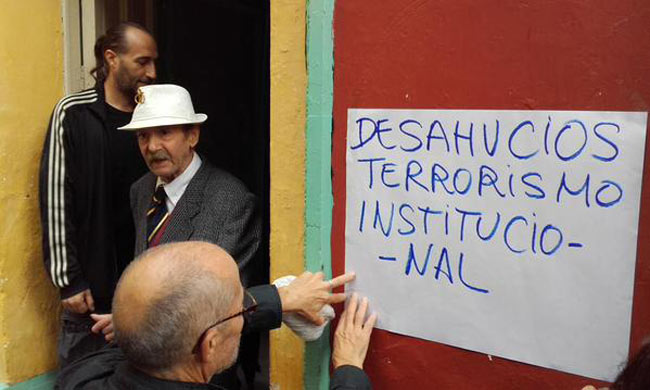 DESAHUCiOS
TERRORISMO
INSTITUCIO-
-NAL